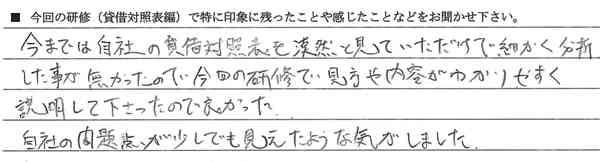 ■ 今回の研修（貸借対照表編）で特に印象に残ったことや感じたことなどをお聞かせ下さい。
今までは自社の貸借対照表を漠然と見ていただけで細かく分析
した事が無かったので今回の研修で見方や内容がわかりやすく
説明して下さったので良かった。
自社の問題点が少しでも見えたような気がしました。